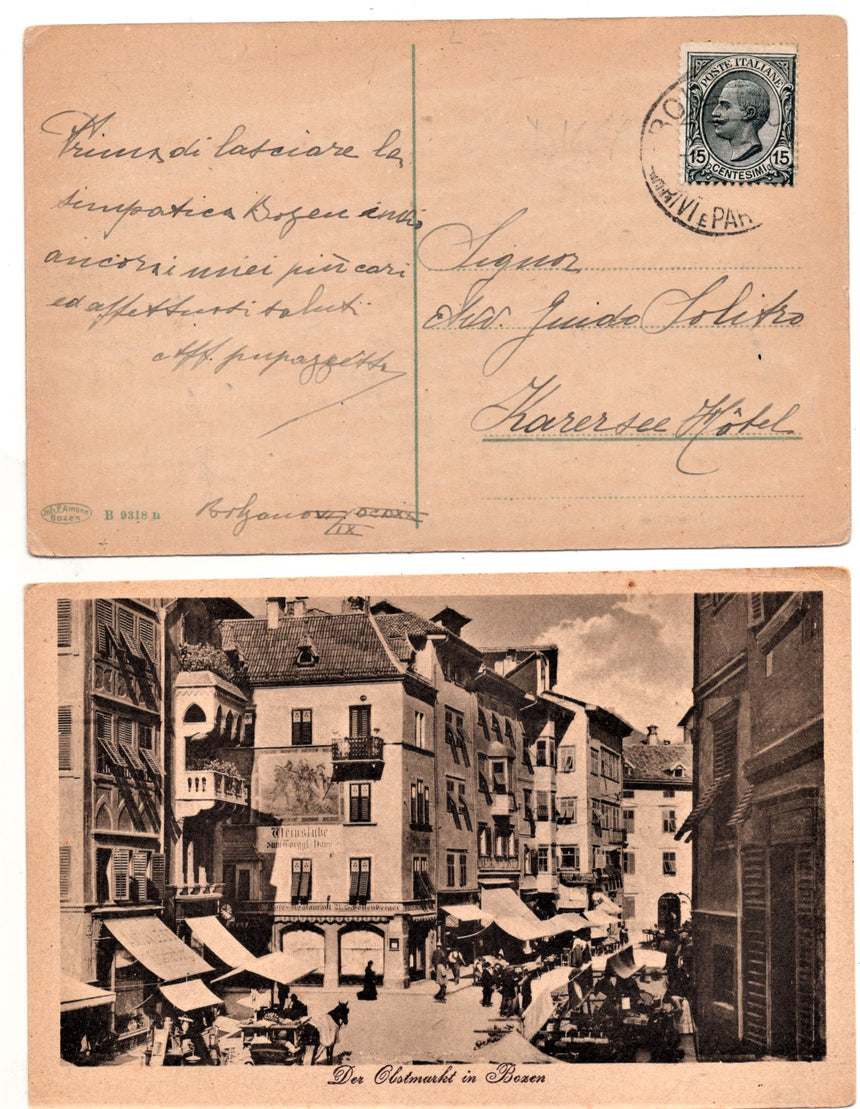 Prima di lasciare la
simpatica Bozen invio
ancora i miei più cari
ed affettuosi saluti
Aff. pupazzetto
Bolzano
IX
Joh. F. Amonn
Bozen
B 9318 n
POSTE ITALIANE
15 15
CENTESIMI
BO
ARRIVI E PAR
Signor
Avv. Guido Solitro
Karersee Hôtel
Weinstube
zum Torggl-Haus
Restaurant
Der Obstmarkt in Bozen